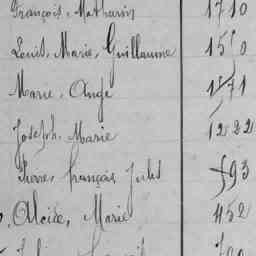 François, Mathurin 1710
Louis, Marie, Guillaume 1570
Marie, Ange 1871
Joseph, Marie 1222
Pierre, François, Jules 593
Alcide, Marie 452